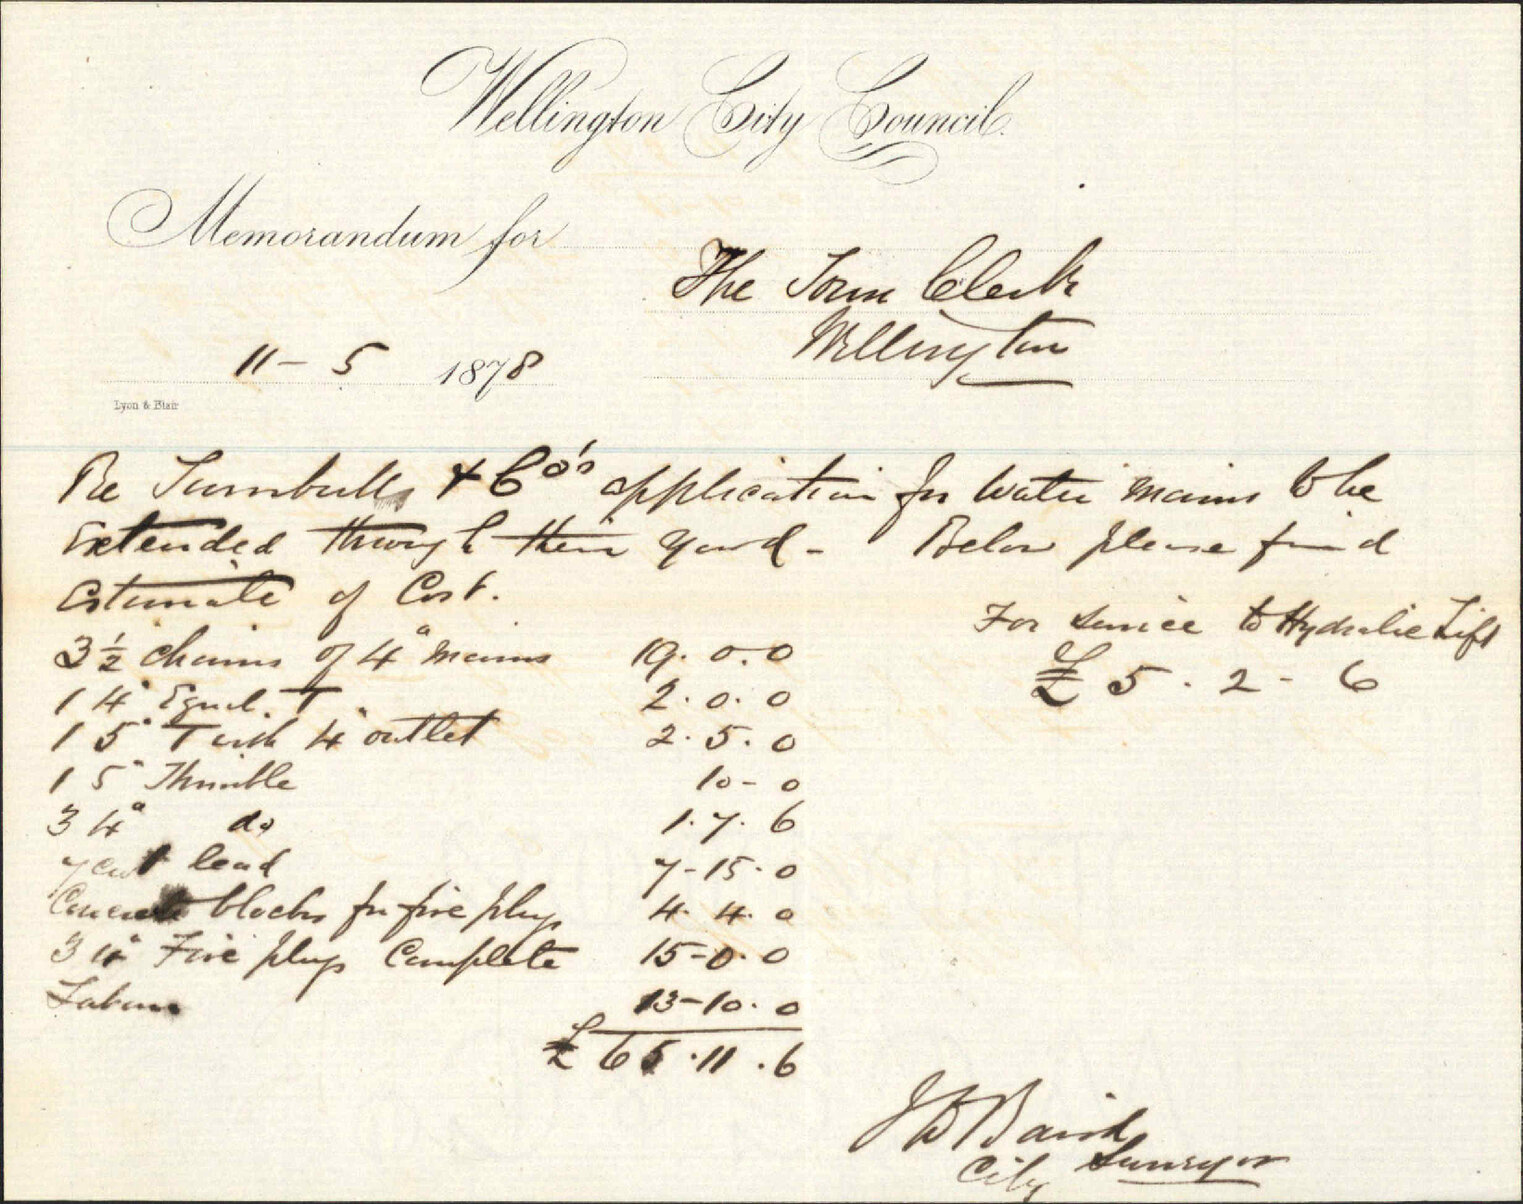 Wellington City Council.
Memorandum for
The Town Clerk
Wellington
11 - 5 1878
Lyon & Blair
Re Turnbulls & Co's application for Water mains to be
Extended through their yard - Below please find
Estimate of Cost.
For service to Hydraulic Lift
£ 5 . 2 - 6
3½ chains of 4" mains 19. 0. 0
1 4" Equal T 2. 0. 0
1 5" T with 4" outlet 2. 5. 0
1 5" Thimble 10 - 0
3 4" do 1. 7. 6
7 cwt lead 7 - 15. 0
Concrete blocks for fire plugs 4. 4. 0
3 4" Fire plugs Complete 15 - 0. 0
Labour 13 - 10. 0
£ 65 . 11 . 6
J D Baird
City Surveyor